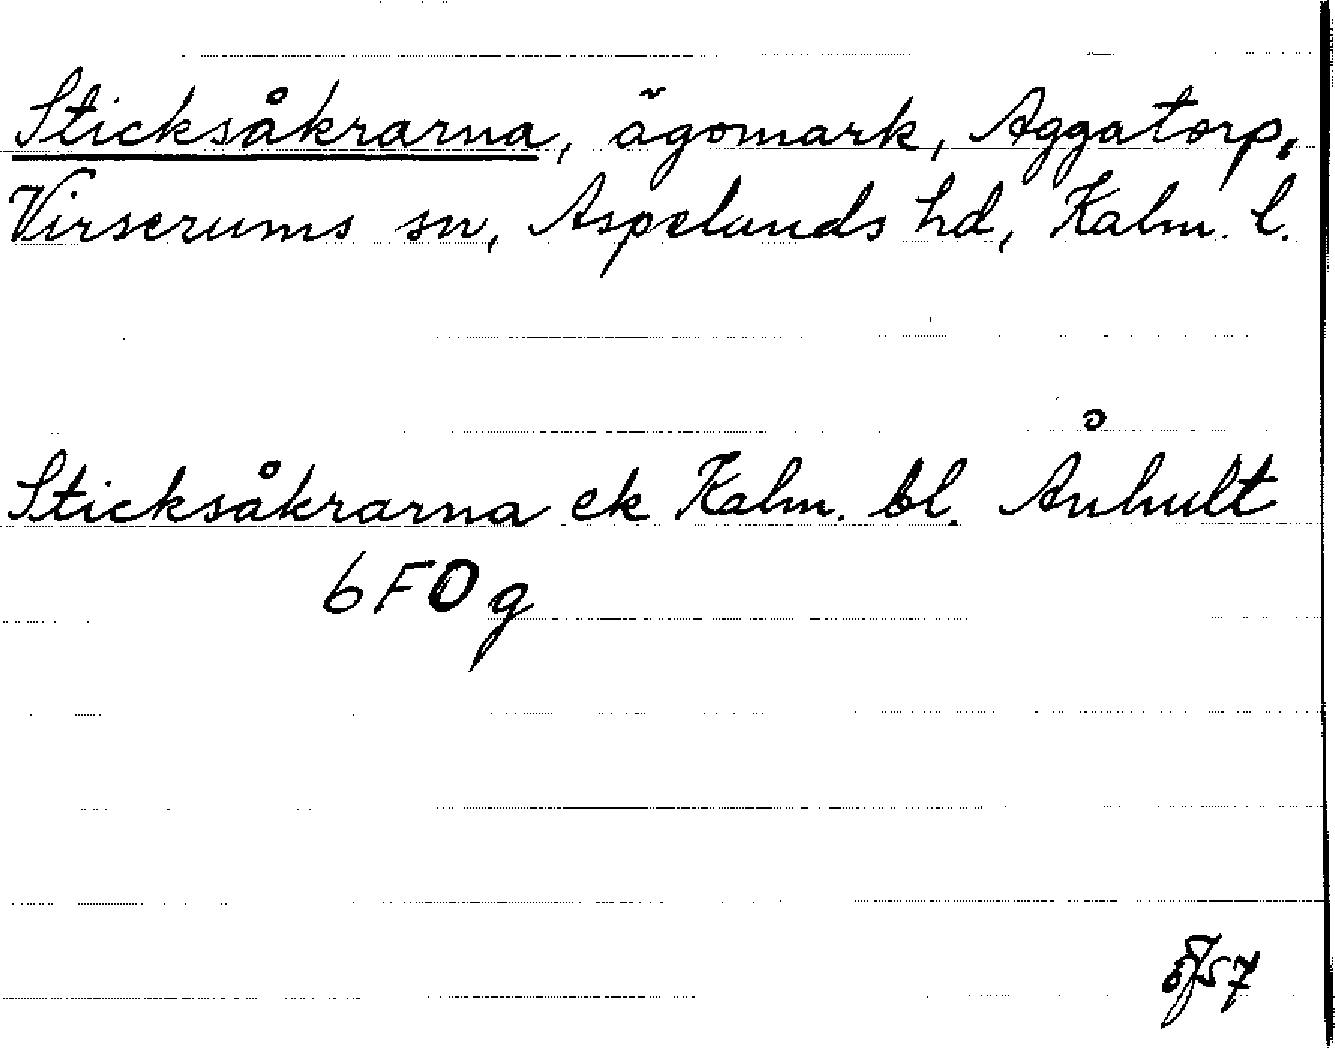 Sticksåkrarna, ägomark, Aggatorp,
Virserums sn, Aspelands hd, Kalm. l.
Sticksåkrarna ek Kalm. bl. Ånhult
6 F0 g